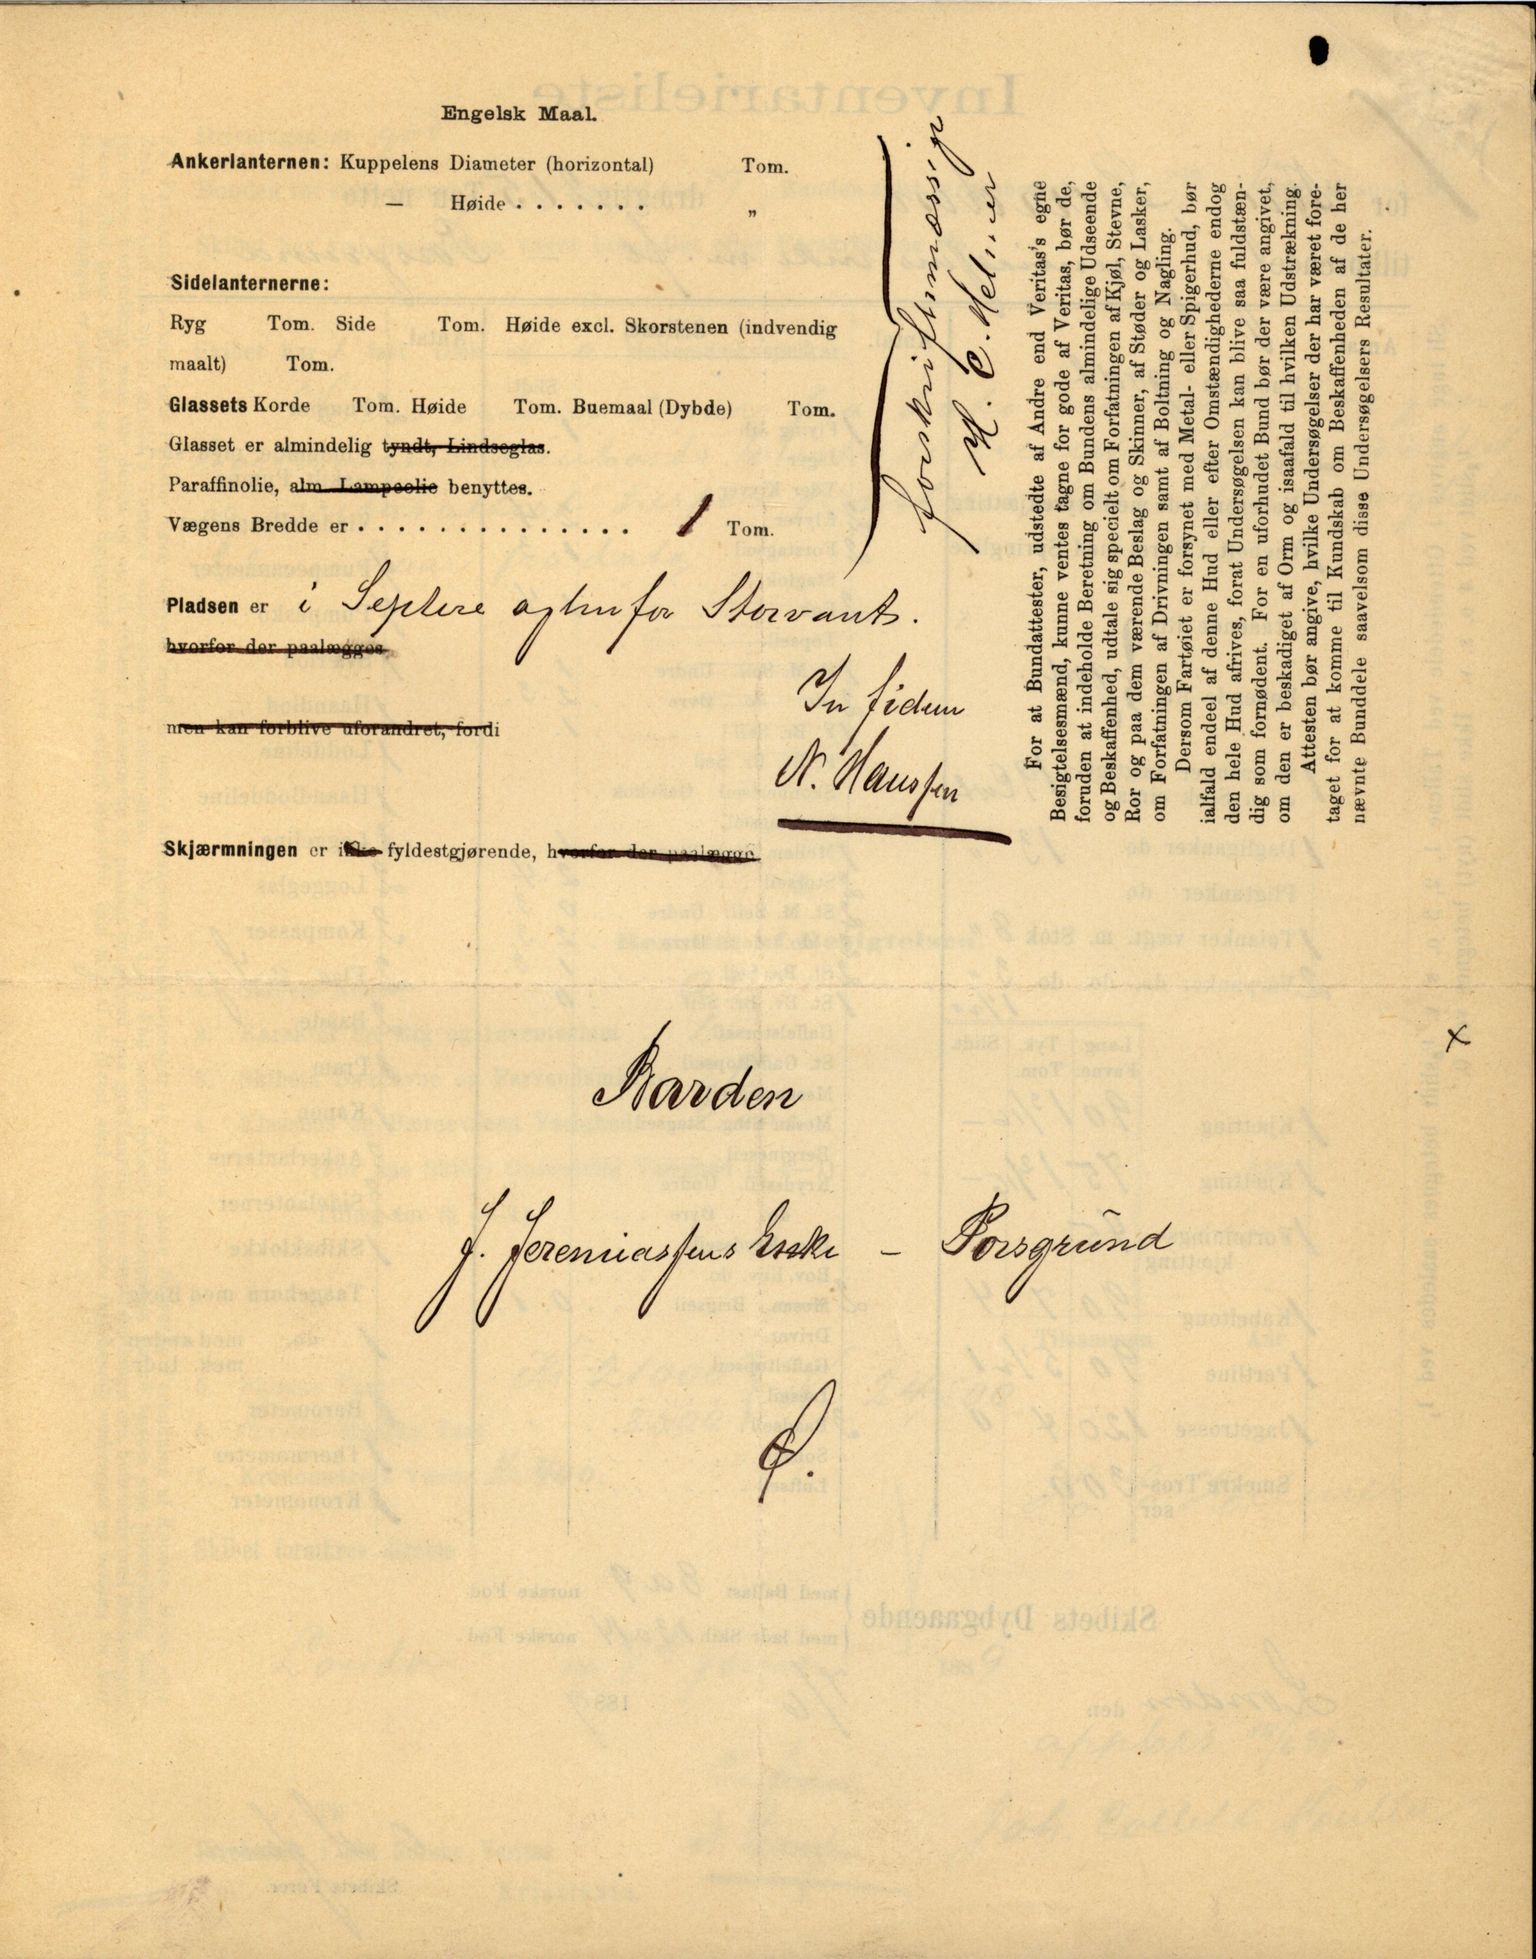 Engelsk Maal.
Ankerlanternen: Kuppelens Diameter (horizontal) Tom.
— Høide . . . . . . . „
Sidelanternerne:
Ryg Tom. Side Tom. Høide excl. Skorstenen (indvendig
maalt) Tom.
Glassets Korde Tom. Høide Tom. Buemaal (Dybde) Tom.
Glasset er almindelig tyndt, Lindseglas.
Paraffinolie, alm. Lampeolie benyttes.
Vægens Bredde er . . . . . . . . . . . . . . 1 Tom.
Pladsen er i agten for Storvant.
hvorfor der paalægges
men kan forblive uforandret, fordi
In fidem
N. Hanssen
Skjærmningen er ikke fyldestgjørende, hvorfor der paalægge
forskriftsmæssige
H. C.
For at Bundattester, udstedte af Andre end Veritas's egne
Besigtelsesmænd, kunne ventes tagne for gode af Veritas, bør de,
foruden at indeholde Beretning om Bundens almindelige Udseende
og Beskaffenhed, udtale sig specielt om Forfatningen af Kjøl, Stevne,
Ror og paa dem værende Beslag og Skinner, af Støder og Lasker,
om Forfatningen af Drivningen samt af Boltning og Nagling.
Dersom Fartøiet er forsynet med Metal- eller Spigerhud, bør
ialfald endeel af denne Hud eller efter Omstændighederne endog
den hele Hud afrives, forat Undersøgelsen kan blive saa fuldstæn-
dig som fornødent. For en uforhudet Bund bør der være angivet,
om den er beskadiget af Orm og isaafald til hvilken Udstrækning.
Attesten bør angive, hvilke Undersøgelser der har været fore-
taget for at komme til Kundskab om Beskaffenheden af de her
nævnte Bunddele saavelsom disse Undersøgelsers Resultater.
x
Barden
J. Jeremiassens Enke – Porsgrund